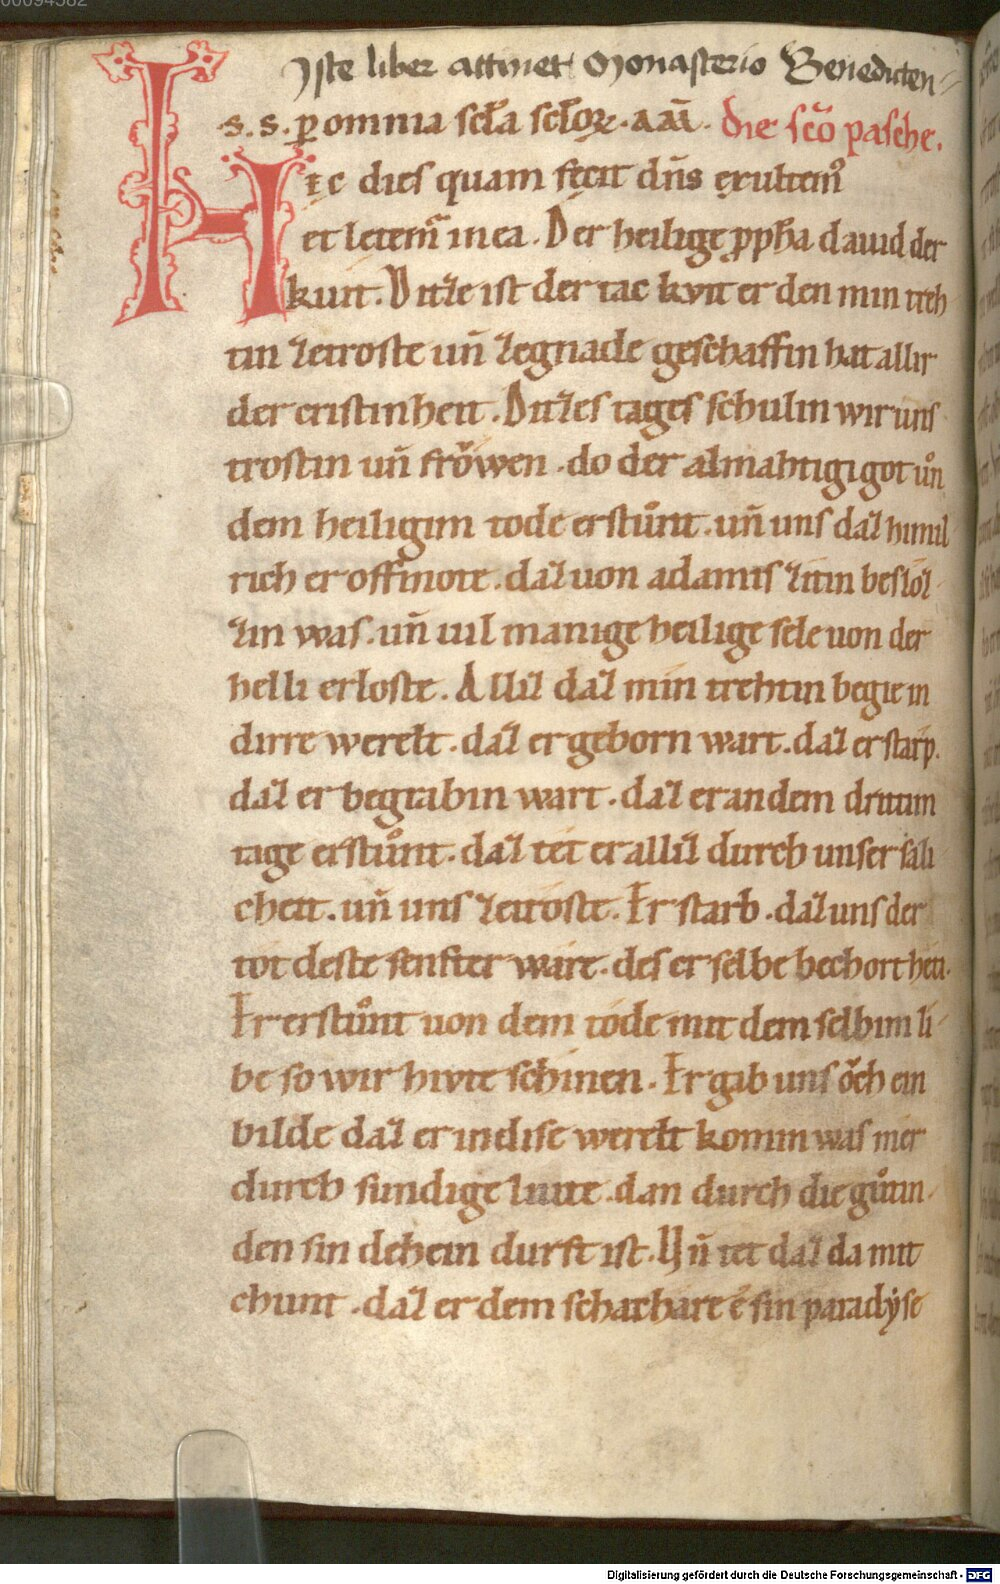 00094582
Iste liber attinet Monasterio Benedicten-
s. s. ꝑ omnia scl̄a scl̄oꝝ. am̄. Die scō pasche.
HEc dies quam fecit dn̄s exultemꝰ
et letemͣ in ea. Der heilige ꝓph̄a dauid der
kuit. Ditze ist der tac kvit er den min treh
tin zetroste un̄ zegnade geschaffin hat allir
der cristinheit. Ditzes tages schulin wir uns
trostin un̄ frǒwen. do der almahtigi got uͦn
dem heiligim tode erstuͦnt. un̄ uns daz himil
rich er offinote. daz uon adamis zitin besloz-
zin was. un̄ uil manige heilige sele uon der
helli erloste. Alliz daz min trehtin begie in
dirre werelt. daz er geborn wart. daz er starp.
daz er begrabin wart. daz er an dem drittim
tage erstuͦnt. daz tet er alliz durch unser sali
cheit. un̄ uns zetroste. Er starb. daz uns der
tot deste senfter ware. des er selbe bechort heti.
Er erstuͦnt uon dem tode mit dem selbim li-
be so wir hivte schinen. Er gib uns ǒch ein
bilde daz er in dise werelt komin was mer
durch sundige liute. dan durch die guͦtin-
den sin dehein durft ist. Un̄ tet daz da mit
chunt. daz er dem schachare e sin paradẏse
Digitalisierung gefördert durch die Deutsche Forschungsgemeinschaft - DFG